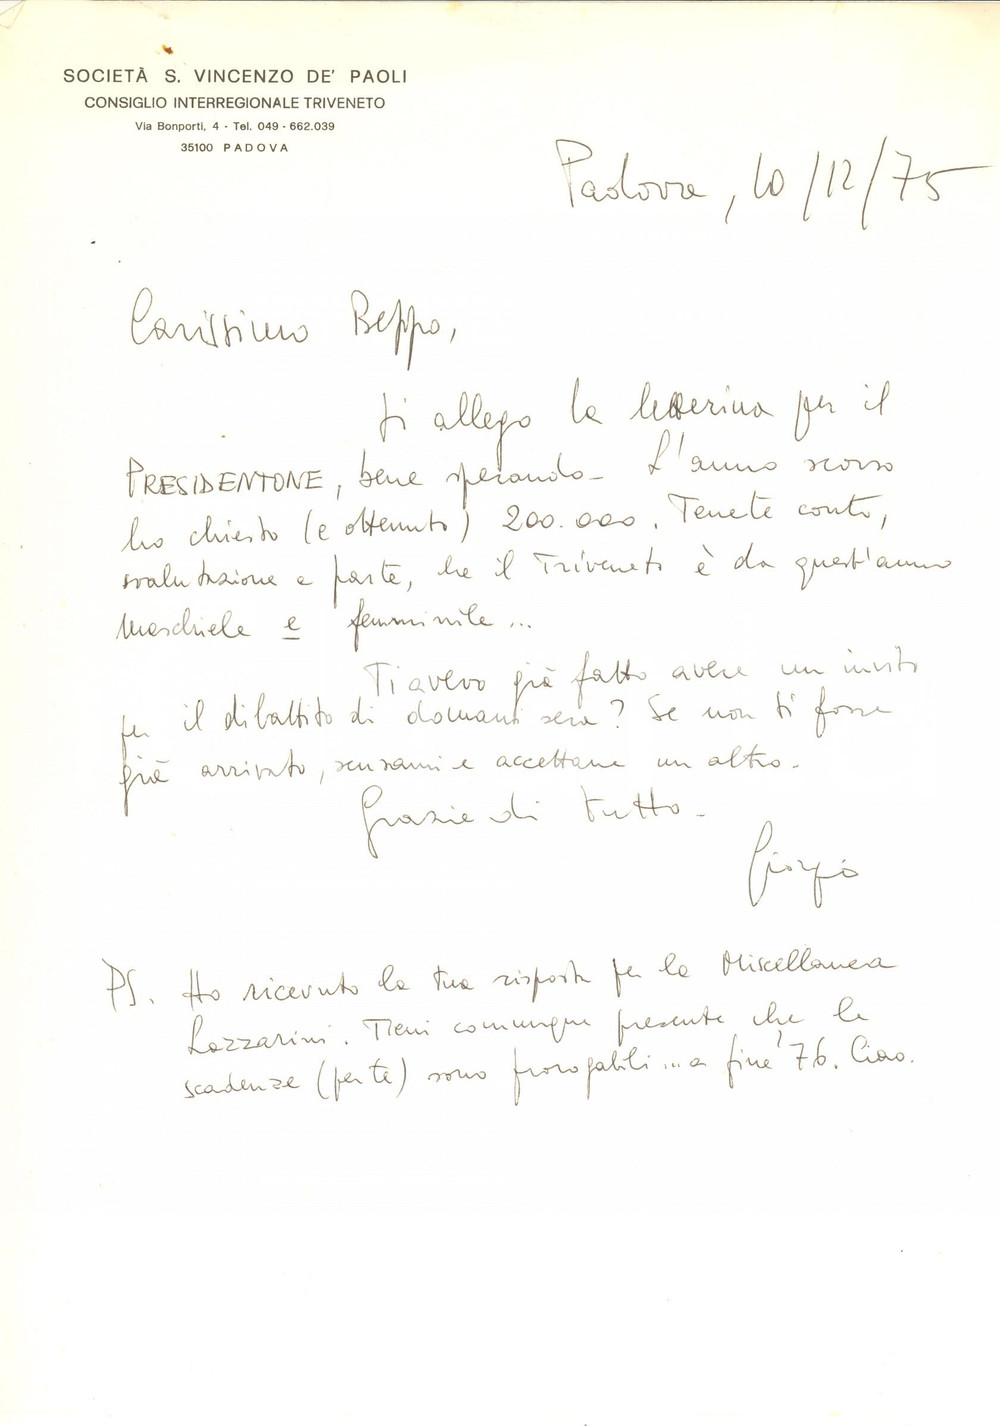 SOCIETÀ S. VINCENZO DE' PAOLI
CONSIGLIO INTERREGIONALE TRIVENETO
Via Bonporti, 4 - Tel. 049 - 662.039
35100 PADOVA
Padova, 10/12/75
Carissimo Beppo,
ti allego la letterina per il
PRESIDENTONE, bene sperando - L'anno scorso
ho chiesto (e ottenuto) 200.000. Tenete conto,
svalutazione a parte, che il Triveneto è da quest'anno
maschile e femminile...
Ti avevo già fatto avere un invito
per il dibattito di domani sera? Se non ti fosse
già arrivato, scusami e accettane un altro -
Grazie di tutto -
Giorgio
PS. Ho ricevuto la tua risposta per la Miscellanea
Lazzarini. Tieni comunque presente che le
scadenze (per te) sono prorogabili... a fine '76. Ciao.